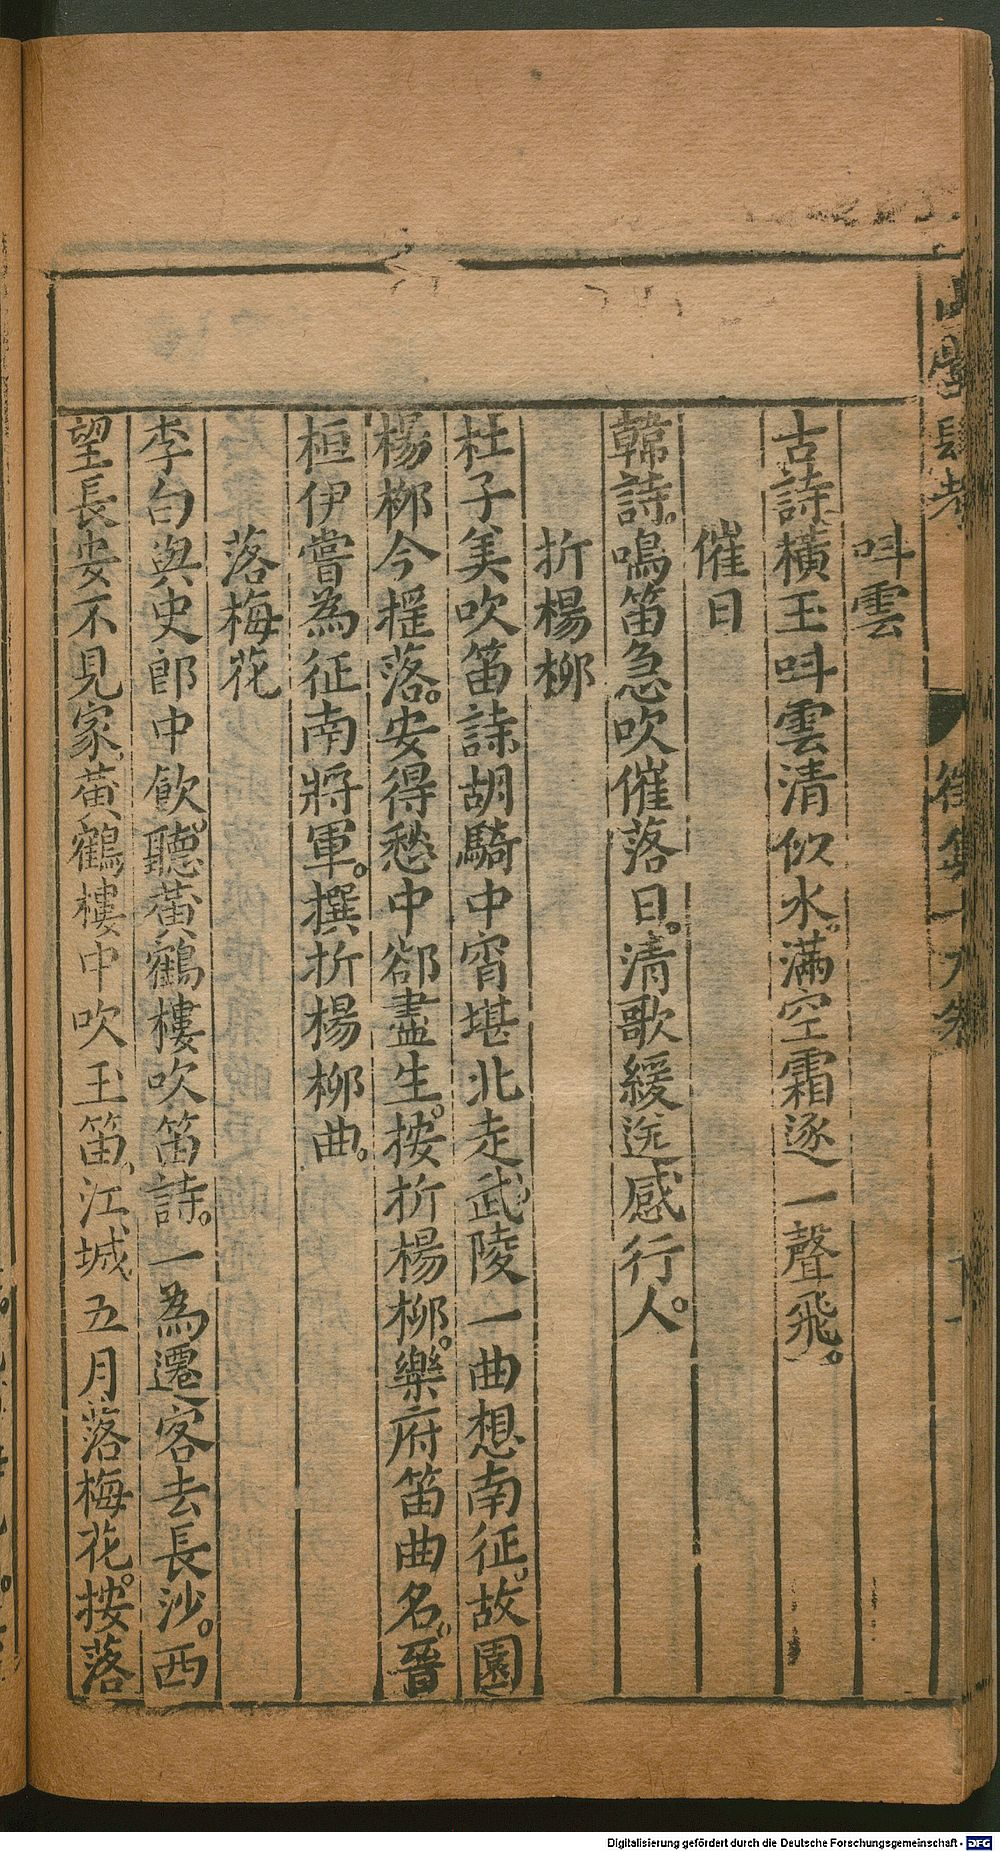 叫雲
古詩橫玉呌雲清似水。滿空霜逐一聲飛。
催日
韓詩。鳴笛急吹催落日。清歌緩送感行人。
折楊柳
杜子美吹笛詩胡騎中宵堪北走武陵一曲想南征。故園
楊栁今揺落。安得愁中卻盡生。按折楊柳。樂府笛曲名。晉
桓伊嘗為征南將軍。撰折楊柳曲。
落梅花
李白與史郎中飲。聽黃鶴樓吹笛詩。一為遷客去長沙。西
望長安不見家。黃鶴樓中吹玉笛。江城五月落梅花。按落
山堂肆考
徵集十九卷
Digitalisierung gefördert durch die Deutsche Forschungsgemeinschaft - DFG